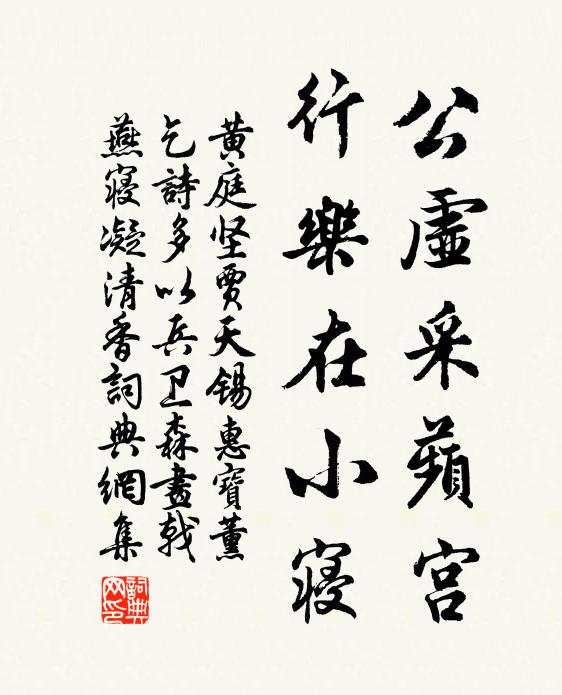 公虛采蘋宮
行樂在小寢
黃庭坚賈天錫惠寶薰
乞詩多以兵卫森畫戟
燕寢凝清香詞典網集
詞典网印